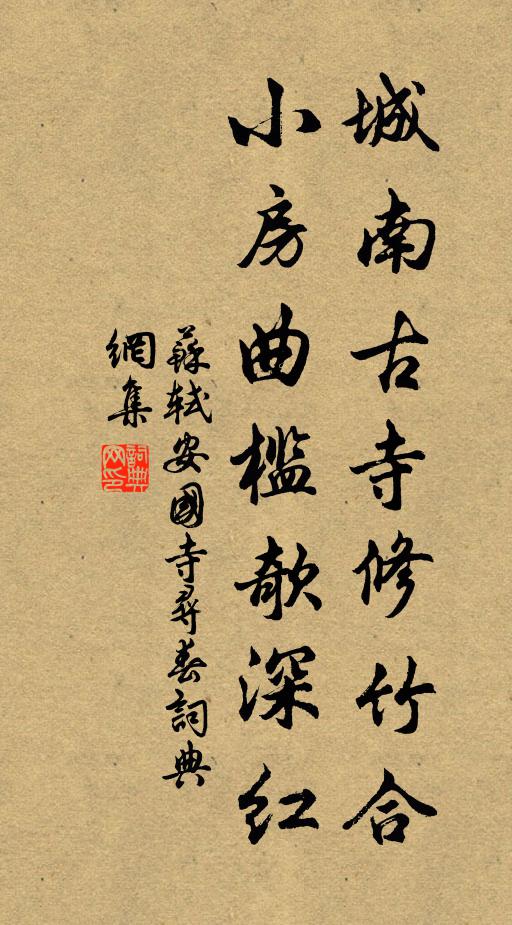 城南古寺修竹合
小房曲檻欹深紅
蘇軾安國寺尋春詞典
網集
詞典網印